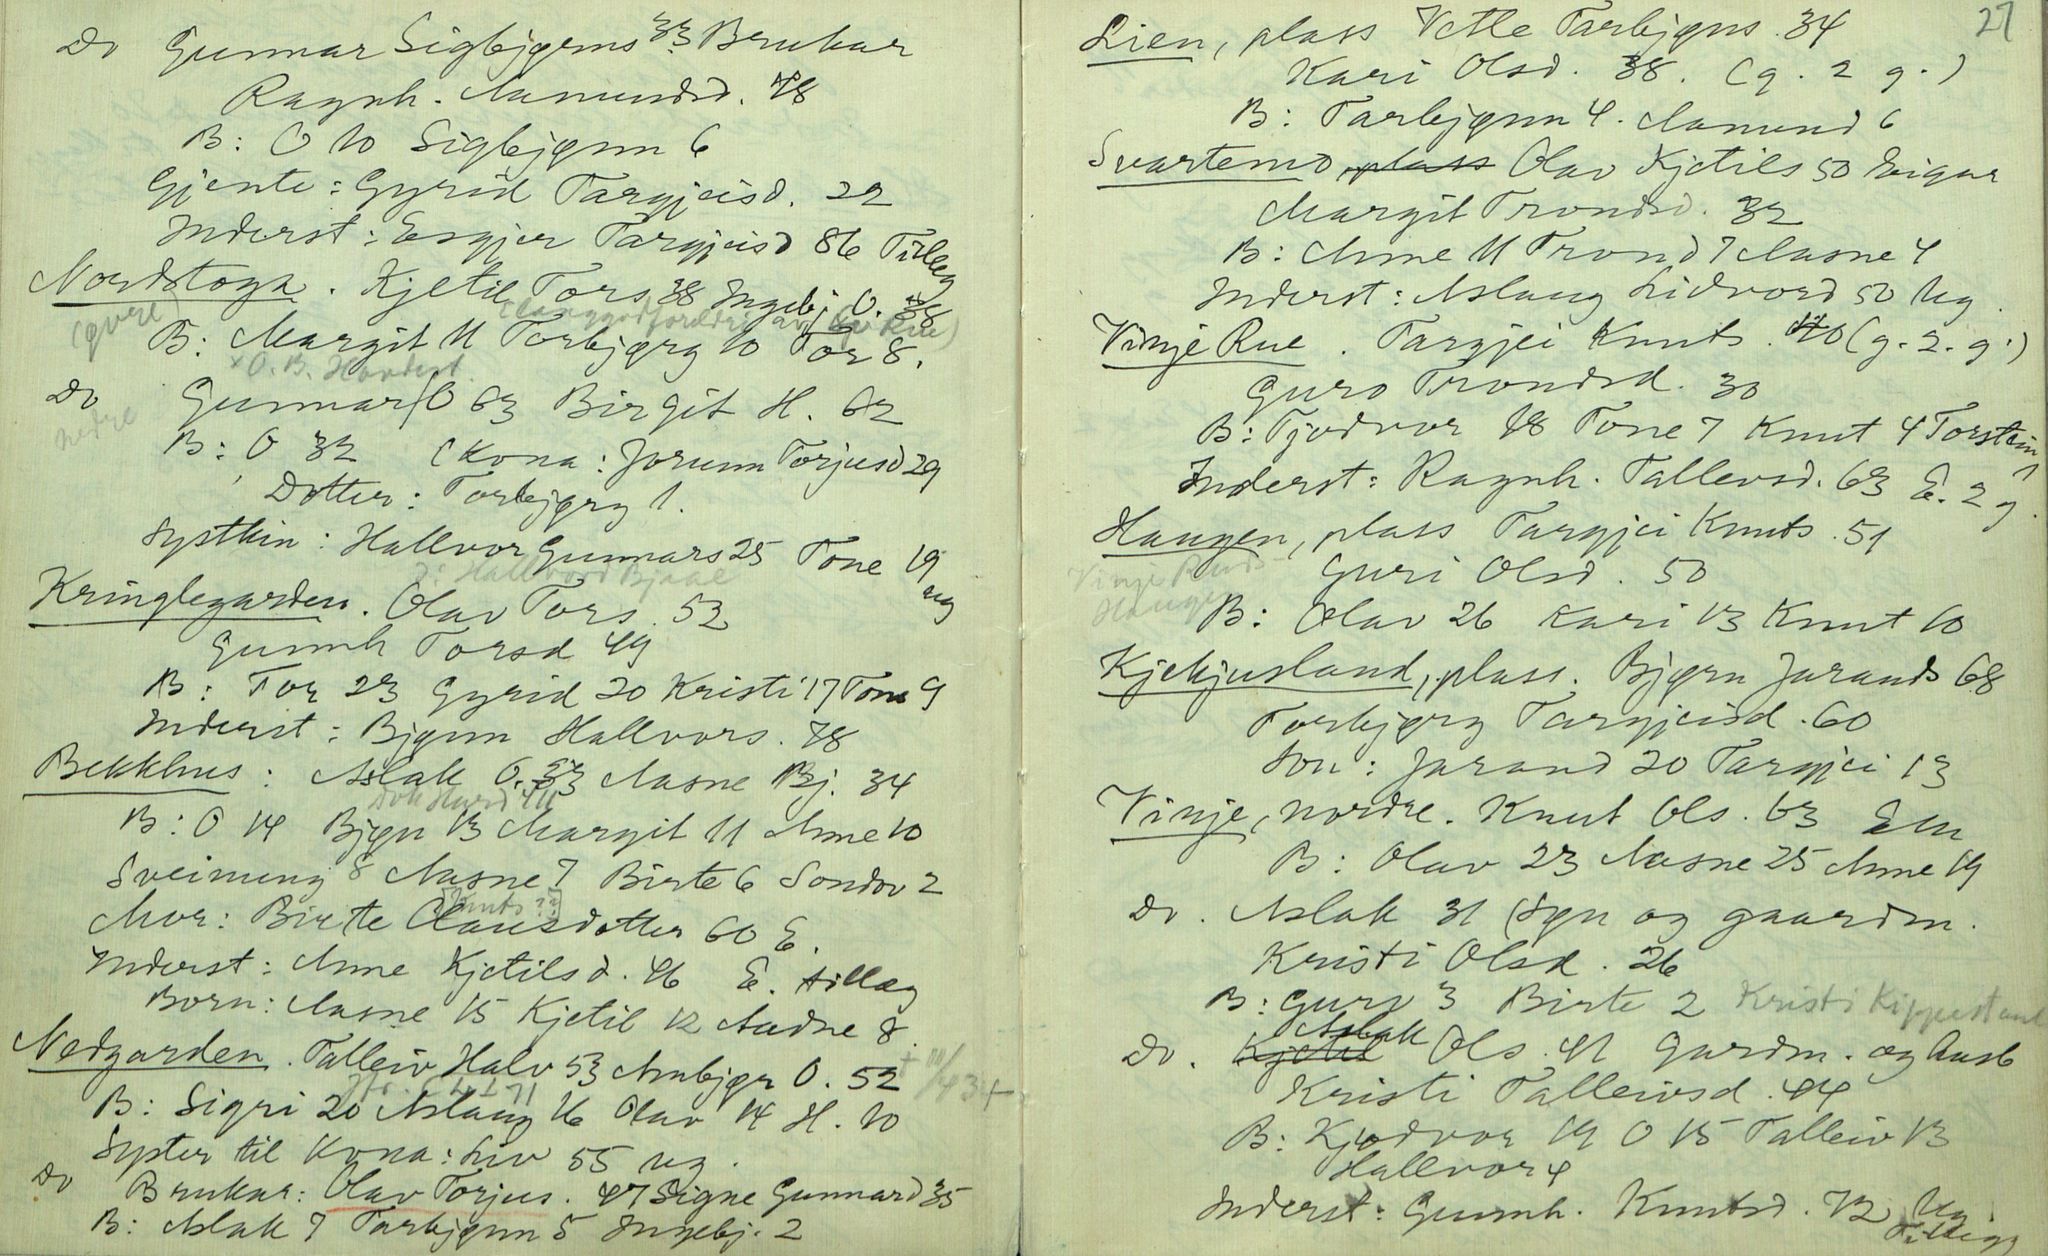 Do Gunnar Sigbjørns 33 Brukar
Ragnh. Aamundsd. 48
B: O 10 Sigbjørn 6
Gjente: Gyrid Targjeisd. 22
Inderst: Targjeisd 86 Tillæg
Nordstoga. Kjetil Tors 38 Ingebj O. 38
(øvre)
B: Margit 11 Torbjørg 10 Tor 8.
x O. B. Hovdest.
Do Gunnar O 63 Birgit H. 62
nedre
B: O 32 (Kona: Jorunn Torjusd 29
Dotter: Torbjørg 1.
Systkin: Hallvor Gunnars 25 Tone 19 ug
Hallvord Bjaae
Kringlegarden. Olav Tors. 52
Gunnh Torsd 49
B: Tor 23 Gyrid 20 Kristi 17 Tone 9
Inderst: Bjønn Hallvors. 78
Bekkhus: Aslak O. 33 Aasne Bj. 34
B: O 14 Bjøn 13 Margit 11 Anne 10
Sveinung 8 Aasne 7 Birte 6 Sondov 2
[Knuts??]
Mor: Birte Olausdotter 60 E.
Inderst: Anne Kjetilsd. 46 E. tillæg
Born: Aasne 15 Kjetil 12 Aadne 8
Nedgarden. Talleiv Halv 53 Anbjør O. 52
B: Sigri 20 Aslaug 16 Olav 14 H. 10
Syster til Kona: Liv 55 ug.
Do Brukar: Olav Torjus. 47 Signe Gunnard 35
B: Aslak 7 Tarbjønn 5 Ingebj. 2
27
Lien, plass Vetle Tarbjøns. 34
Kari Olsd. 38. (g. 2 g.)
B: Tarbjønn 4. Aamund 6
Svartemo, plass Olav Kjetils 50 Eigar
Margit Trondsd. 32
B: Anne 11 Trond 7 Aasne 4
Inderst: Aslaug Lidvord 50 ug.
Vinje Rue. Targjei Knuts. 40 (g. 2. g.)
Guro Trondsd. 30
B: Tjodvor 18 Tone 7 Knut 4 Torstein 1
Inderst: Ragnh. Tallevsd. 63 E. 2 g.
Haugen, plass Targjei Knuts. 51
Guri Olsd. 50
Vinje Ruds
Haugen
B: Olav 26 Kari 13 Knut 10
Kjekjusland, plass. Bjørn Jarands 68
Torbjørg Targjeisd. 60
Son: Jarand 20 Targjei 13
Vinje, nordre. Knut Ols. 63 Em
B: Olav 23 Aasne 25 Anne 19
Do. Aslak 31 (Søn og gaardm.
Kristi Olsd. 26
B: Guro 3 Birte 2 Kristi
Aslak
Do. Kjetil Ols. 41 Gardm. og
Kristi Talleivsd. 44
B: Kjødvor 19 O 15 Talleiv 13
Hallvor 4
Inderst: Gunnh. Knutsd. 72 Ug.
Tillægg